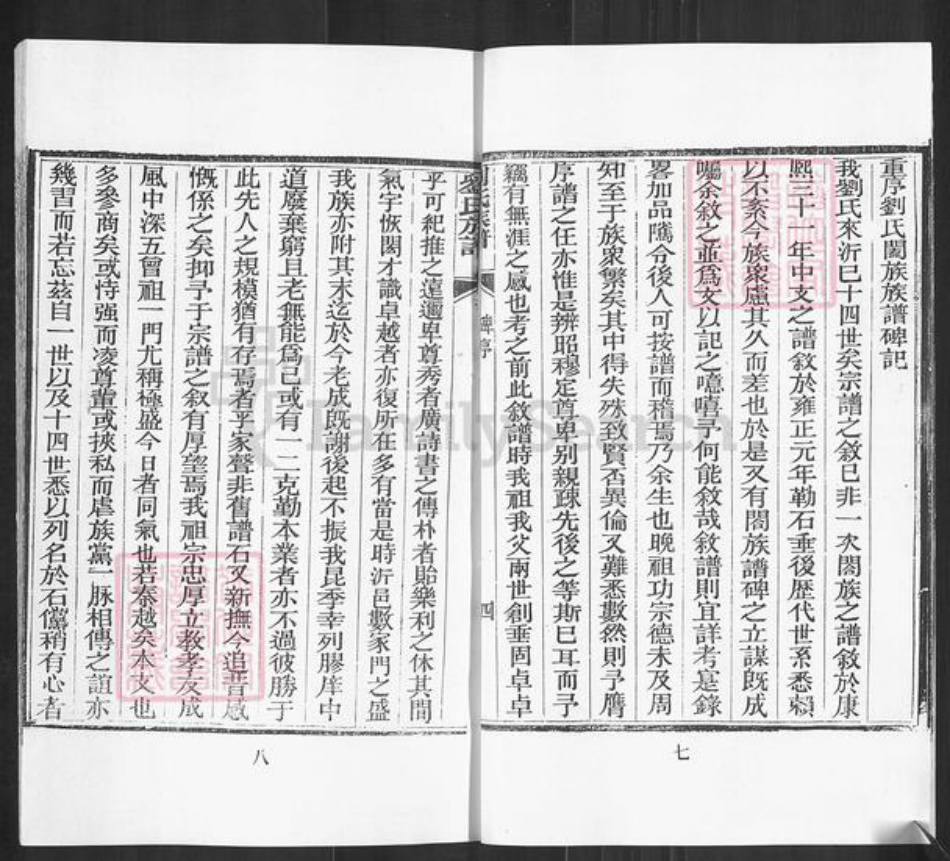 重序劉氏閤族族譜碑記
我劉氏來沂巳十四世矣宗譜之敘巳非一次閤族之譜敘於康
熙三十 年中支之譜敘於雍正元年勒石垂後歷代世系悉賴
以不紊今族衆慮其久而差也於是又有閤族譜碑之立謀既成
囑余敘之並爲文以記之噫嘻予何能敘哉敘譜則宜詳考寔錄
畧加品隲令後人可按譜而稽焉乃余生也晚祖功宗德未及周
知至于族衆繁矣其中得失殊致賢否異倫又難悉數然則予膺
序譜之任亦惟是辨昭穆定尊卑别親踈先後之等斯巳耳而予
竊有無涯之感也考之前此敘譜時我祖我父兩世創垂固卓卓
劉氏族譜
碑序
四
乎可紀推之遠邇卑尊秀者廣詩書之傳朴者貽樂利之休其間
氣宇恢閎才識卓越者亦復所在多有當是時沂邑數家門之盛
我族亦附其末迄於今老成既謝後起不振我昆季幸列膠庠中
道廢棄窮且老無能爲巳或有一二克勤本業者亦不過彼勝于
此先人之規模猶有存焉者乎家聲非舊譜石又新撫今追昔感
慨係之矣抑予于宗譜之叙有厚望焉我祖宗忠厚立教孝友成
風中深五曾祖一門尤稱極盛今日者同氣也若秦越矣本支也
多參商矣或恃强而凌尊輩或挾私而虐族黨一脉相傳之誼亦
幾習而若忘茲自一世以及十四世悉以列名於石儻稍有心者
七
八
FamilySearch